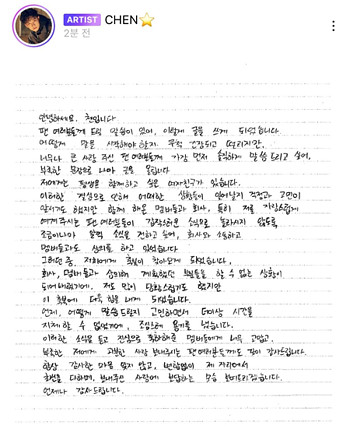 ARTIST CHEN
2분 전
안녕하세요. 첸입니다
팬 여러분들께 드릴 말씀이 있어, 이렇게 글을 쓰게 되었습니다.
어떻게 말을 시작해야 할지 무척 긴장되고 떨리지만,
너무나 큰 사랑 주신 팬 여러분들께 가장 먼저 솔직하게 말씀 드리고 싶어,
부족한 문장으로 나마 글을 올립니다
저에게는 평생을 함께하고 싶은 여자친구가 있습니다.
이러한 결심으로 인해 어떠한 상황들이 일어날지 걱정과 고민이
앞서기도 했지만 함께 해온 멤버들과 회사, 특히 저를 자랑스럽게
여겨주시는 팬 여러분들이 갑작스러운 소식으로 놀라시지 않도록
조금이나마 일찍 소식을 전하고 싶어, 회사와 소통하고
멤버들과도 상의를 하고 있었습니다
그러던 중, 저희에게 축복이 찾아오게 되었습니다.
회사, 멤버들과 상의해 계획했던 부분들을 할 수 없는 상황이
되어버렸기에, 저도 많이 당황스럽기도 했지만
이 축복에 더욱 힘을 내게 되었습니다.
언제, 어떻게 말씀드릴지 고민하면서 더이상 시간을
지체할 수 없었기에, 조심스레 용기를 냈습니다.
이러한 소식을 듣고 진심으로 축하해준 멤버들에게 너무 고맙고,
부족한 저에게 과분한 사랑 보내주시는 팬 여러분들께도 깊이 감사드립니다.
항상 감사한 마음 잊지 않고, 변함없이 제 자리에서
최선을 다하며, 보내주신 사랑에 보답하는 모습 보여드리겠습니다.
언제나 감사드립니다.